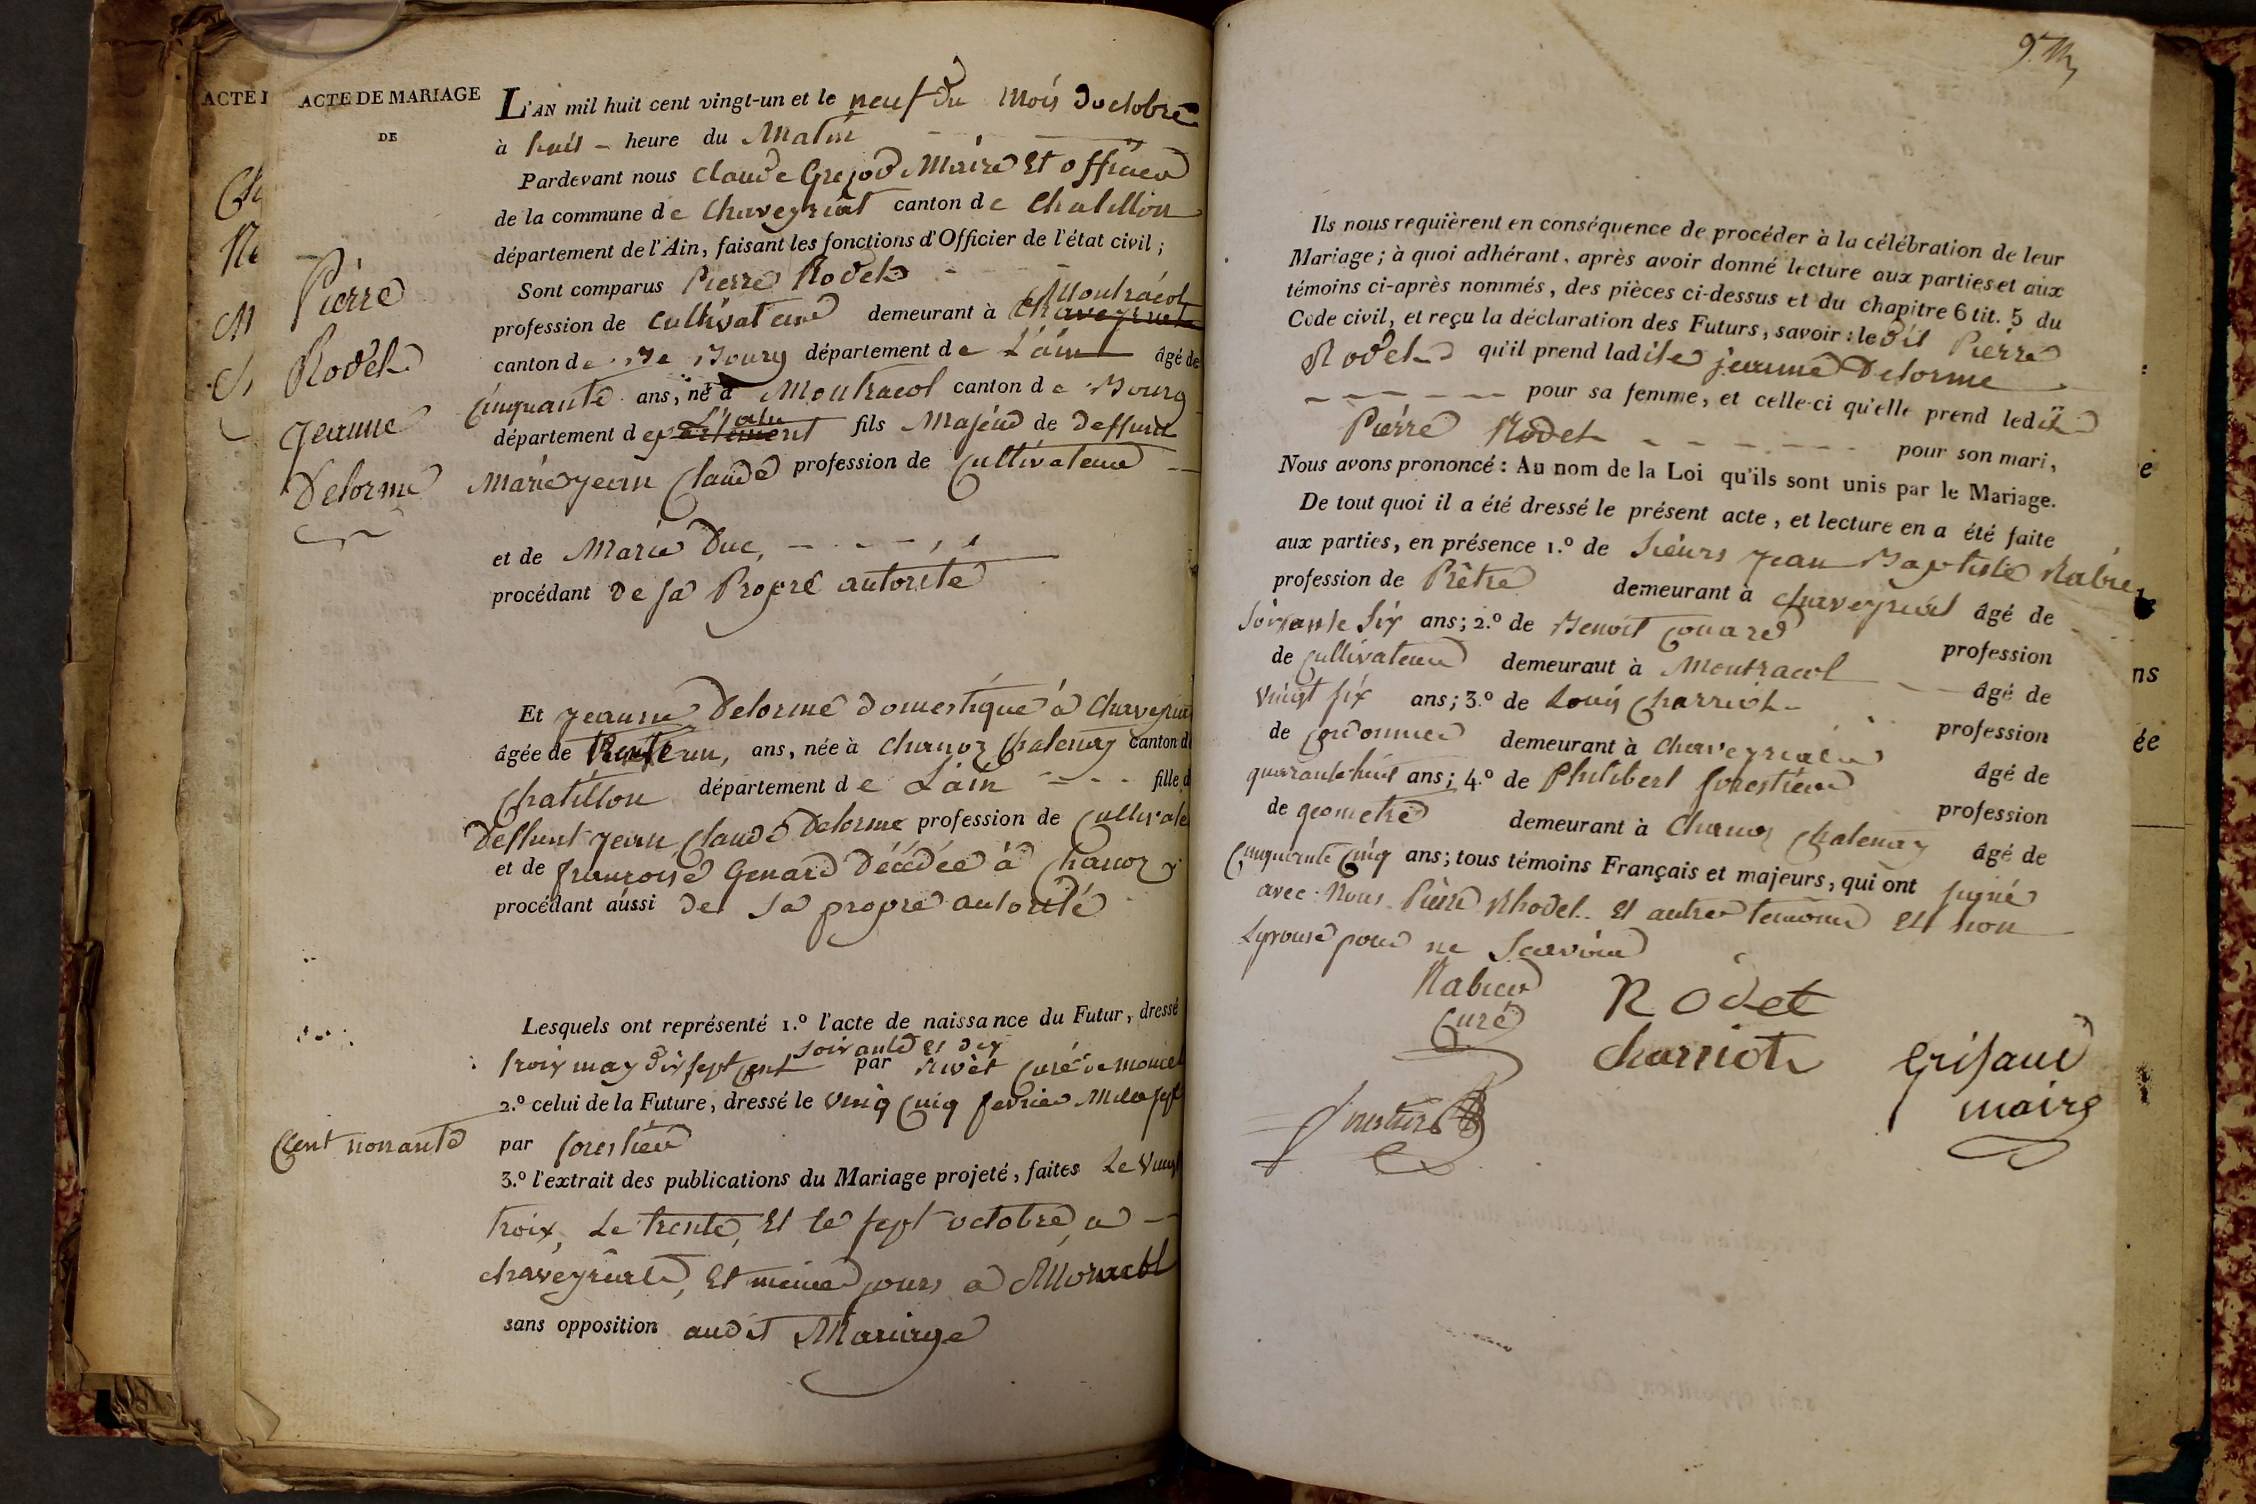 ACTE DE MARIAGE
DE
Pierre
Rodet
Jeanne
Delorme
L'AN mil huit cent vingt-un et le neuf du mois doctobre
à huit - heure du Matin
Pardevant nous Claude Maire Et officier
de la commune de Chaveyriat canton de Chatillon
département de l'Ain, faisant les fonctions d'Officier de l'état civil ;
Sont comparus Pierre Rodet
Montracol
profession de Cultivateur demeurant à Chaveyriat
canton de Bourg département de L'ain âgé de
Cinquante ans, né à Montracol canton de Bourg
L'ain
département de fils Majeur de deffunt
Marie jean Claude profession de Cultivateur
et de Marie Duc,
procédant de sa Propre autorité
Et jeanne Delorme domestique à Chaveyriat
âgée de trente un, ans, née à Chanoz Chatenay canton de
Chatillon département de L'ain fille de
Deffunt jean Claude Delorme profession de Cultivate
et de françoise Genard Décédée à Chanoz
procédant aussi de Sa propre autorité
Lesquels ont représenté 1.º l'acte de naissance du Futur, dressé
soixante et dix
troix may dix sept cent par Rivet Curé de
2.º celui de la Future, dressé le vingt Cinq fevrier Mille sept
Cent nonante
par forestier
3.º l'extrait des publications du Mariage projeté, faites Le Vingt
troix, Le trente, Et le sept octobre, a
chaveyriat, Et meme jours a
sans opposition audit Mariage
Ils nous requièrent en conséquence de procéder à la célébration de leur
Mariage ; à quoi adhérant, après avoir donné lecture aux parties et aux
témoins ci-après nommés, des pièces ci-dessus et du chapitre 6 tit. 5 du
Code civil, et reçu la déclaration des Futurs, savoir : le dit Pierre
Rodet qu'il prend ladite jeanne Delorme
pour sa femme, et celle-ci qu'elle prend ledit
Pierre Rodet pour son mari,
Nous avons prononcé : Au nom de la Loi qu'ils sont unis par le Mariage.
De tout quoi il a été dressé le présent acte, et lecture en a été faite
aux parties, en présence 1.º de Sieurs jean Baptiste Rabuer
profession de Prêtre demeurant à chaveyriat âgé de
soixante six ans ; 2.º de Benoit Couard profession
de Cultivateur demeurant à Montracol âgé de
vingt six ans ; 3.º de Louis Charriot profession
de Cordonnier demeurant à chaveyriat âgé de
quarante huit ans ; 4.º de Philibert forestier profession
de geometre demeurant à Chanoz Chatenay âgé de
Cinquante Cinq ans ; tous témoins Français et majeurs, qui ont signé
avec Nous Pierre Rhodet Et autres temoins Et non
Lepouse pour ne Scavoir
Rabuer
Curé
Rodet
Charriot
Grisaud
maire
forestier